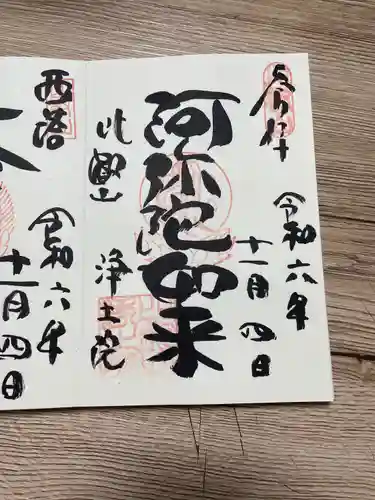 奉拝
令和六年
十一月四日
阿弥陀如来
比叡山 浄土院
令和六年
十一月四日
西塔